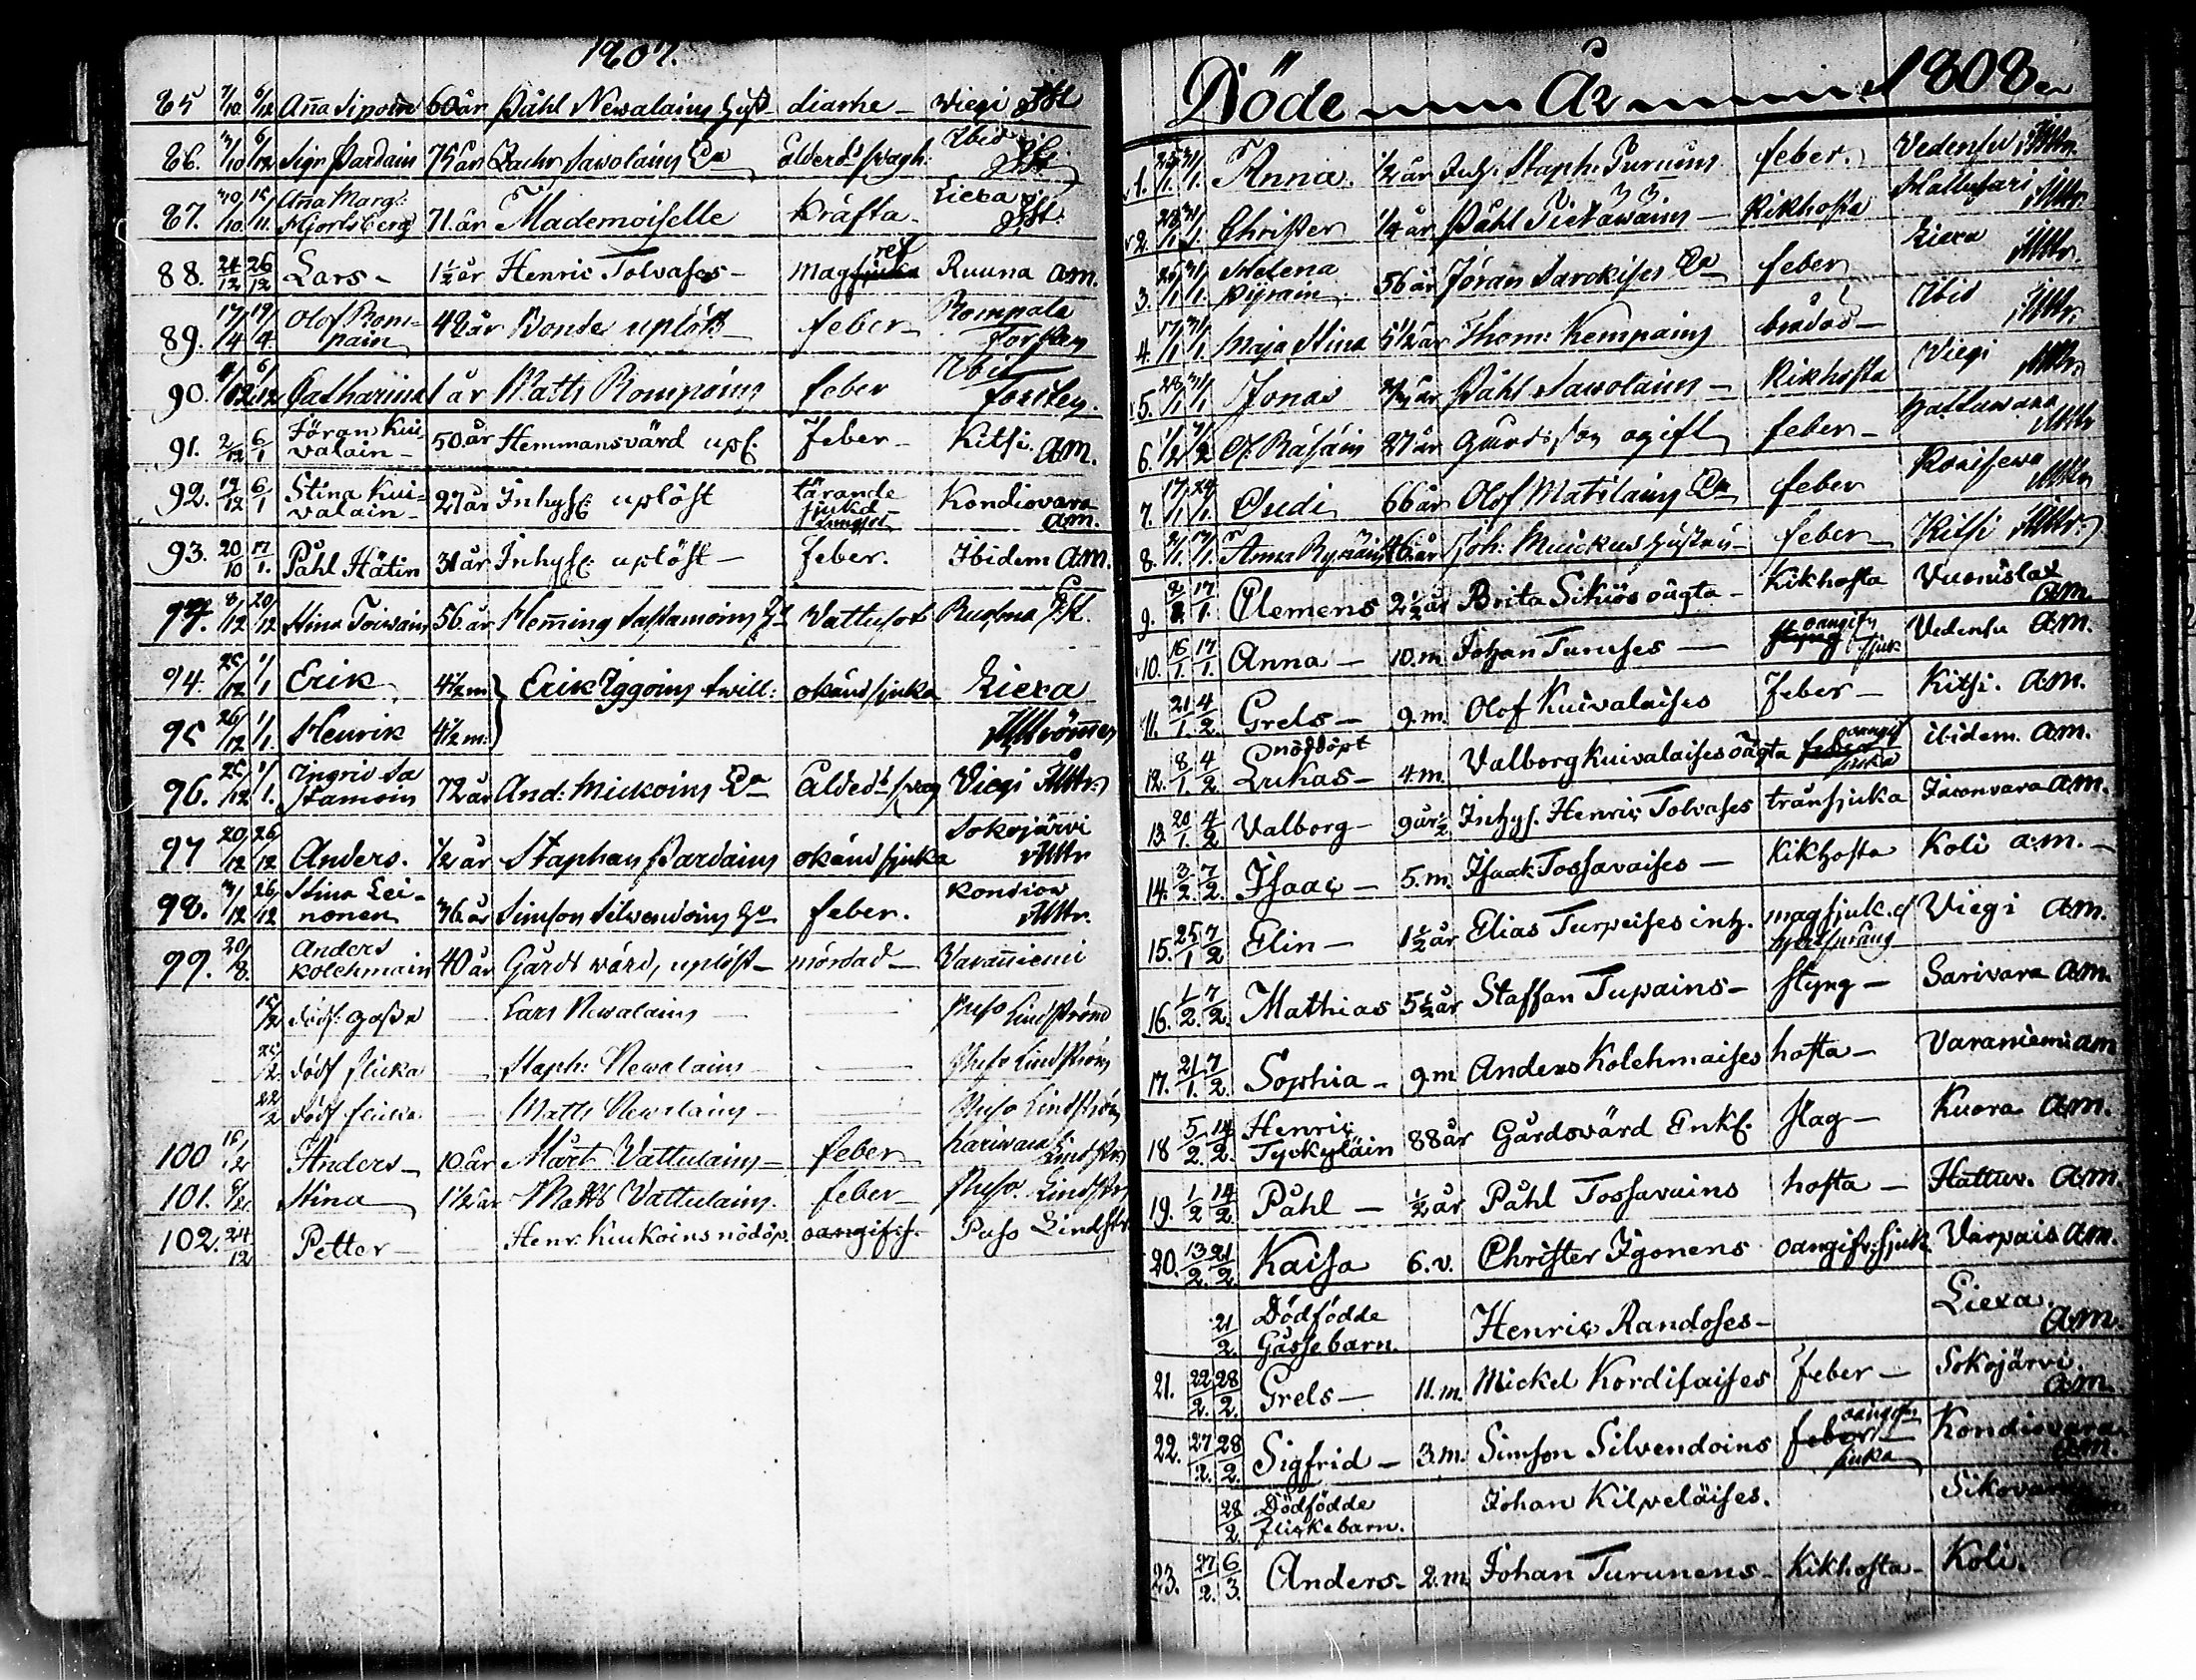 1807.
85 7/10 6/12 Aña Sipoin 60 år Påhl Newalains Hust diarhe - Wiegi
86. 3/10 6/12 Sigr Pardain 75 år Zachr Sawolains Ea ålderds swagh: Ibid
87. 30/10 15/11. Aña Marg: Hjortsberg 71. år Mademoiselle Kräfta - Liexa
88. 24/12 26/12 Lars - 1½ år Henric Tolvases - mag ref Ruuna am.
89. 17/4 19/4 Olof Rompain 42 år Bonde uplöst feber - Rompala Forsten
90. 4/12 6/12 Catharina 1 år Matts Rompoins feber Ibid Forsten.
91. 2/12 6/1 Jöran Kuivalain - 50 år Hemmansvärd upl. Feber - Kitsi. am.
92. 12/12 6/1 Stina Kuivalain - 27 år Inhys: uplöst tärande sjukd Kondiovara am.
93. 20/10 17/1. Påhl Hätin 31 år Inhys: uplöst - Feber. Ibidem am.
8/12 20/12 Stina Toiwain 56 år Hemming Sastamoins Vattusot Ruuna
94. 25/12 1/1 Erik 4½ m Erik Iggoins twill: okänd sjuka Liexa
95 26/12 1/1 Henrik 4½ m: Mströmer
96. 25/12 1/1. Ingrid Sastamoin 72 år And: Mickoins Ea Ålderd: swag Viegi
97 20/12 26/12 Anders. ½ år Staphan Pardains okänd sjuka Sokojärvi
98. 3/12 26/12 Stina Leinonen 36 år Simson Silwendoins Hu feber. Kondiow
99. 20/8. Anders Kolehmain 40 år Gårds wärd, uplöst - mördad - Varañiemi
15/12 dödf: gosse Lars Newalains Puso Lindström
25/12 dödf flicka Staph: Newalains Puso Lindström
22/2 dödf flicka Matts Newalains - Puso Lindström
100 16/12 Anders - 10. år Mårt Vattulains - feber Lindstr
101. 6/12 Stina 1½ år Matts Vattulains. feber Puso. Lindstr
102. 24/12 Petter Henr. Kiukoins nödöp. oangifs. Puso Lindstr
Döde År 1808
1. 25/1. 31/1. Anna. ½ år Inh. Staph. Turuins feber. Vedensu
2. 28/1 31/1. Christer ¼ år Påhl Pietäwäins - Kikhosta Hattusari
3. 26/1 31/1. Helena Pyrain 56 år Jöran Sarokises Ea feber Liexa
4. 17/1 31/1 Maja Stina 5½ år Thom: Kempains brådöd - Ibid
5. 28/1 31/1 Jonas år Påhl Sawolains - Kikhosta Viegi
6. 1/2 7/2 Ol. Räsäin 27 år Gårds son ogift feber - Hattuwara
7. 17/1 24/1 Oudi 66 år Olof Matilains Ea feber Ronisewa
8. 2/1 17/1. Anna Rynäin 46. år Joh: Muickus hustru - feber - Kitsi
9. 2/1. 17/1. Clemens 2½ år Brita Sikiös oägta - Kikhosta Vuonislax am.
10. 16/1. 17/1. Anna - 10. m. Johan Turuses - oangifn sjuk Vedensu am.
11. 21/1. 4/2. Grels - 9. m. Olof Kuivalaises Feber - Kitsi. am.
12. 8/1. 4/2. nöddöpt Lukas - 4 m. Valborg Kuivalaises oägta oangif sjuka ibidem. am.
13. 20/1. 4/2 Valborg - 9 år ½ Inhys. Henric Tolvases trånsjuka Jäconvara am.
14. 3/2. 7/2. Isaac - 5. m. Isaak Tossavaises - Kikhosta Koli am. -
15. 25/1 7/2 Elin - 1½ år Elias Turpeises inh. magsjuk. af Viegi am.
16. 1/2. 7/2. Mathias 5½ år Staffan Tupains - styng - Sarivara am.
17. 21/1. 7/2. Sophia - 9. m Anders Kolehmaises hosta - Varaniemi am
18 5/2. 14/2. Henric Tyckyläin 88 år Gårdsvärd Enkl. slag - Kuora am.
19. 1/2 14/2 Påhl - ½ år Påhl Tossavains hosta - Hattuv. am.
20. 13/2. 21/2 Kaisa 6. v. Christer Igonens oangifv: sjuk. Varpais am.
21/2. Dödfödde Gåssebarn. Henric Randoses - Liexa. am.
21. 22/2. 28/2. Grels - 11. m. Mickel Kordisaises Feber - Sokojärvi. am.
22. 27/2. 28/2. Sigfrid - 3. m. Simson Silvendoins feber oangifn sjuka Kondiovara am.
28/2. Dödfödde flickebarn. Johan Kilpeläises. Sikovara
23. 27/2. 6/3. Anders - 2. m. Johan Turunens - Kikhosta - Koli.